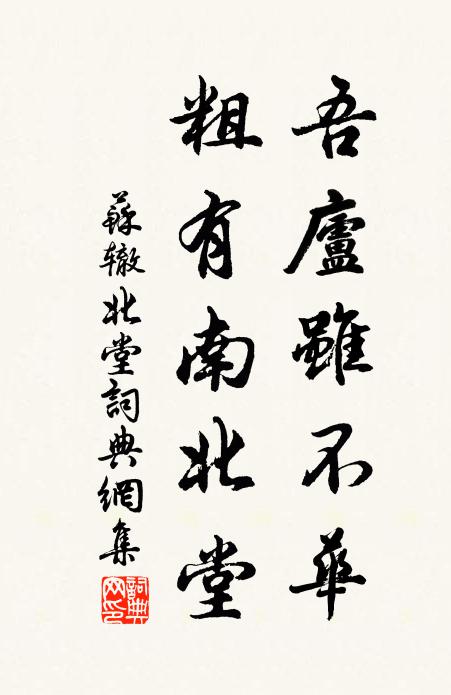 吾廬雖不華
粗有南北堂
蘇辙北堂詞典網集
詞典网印